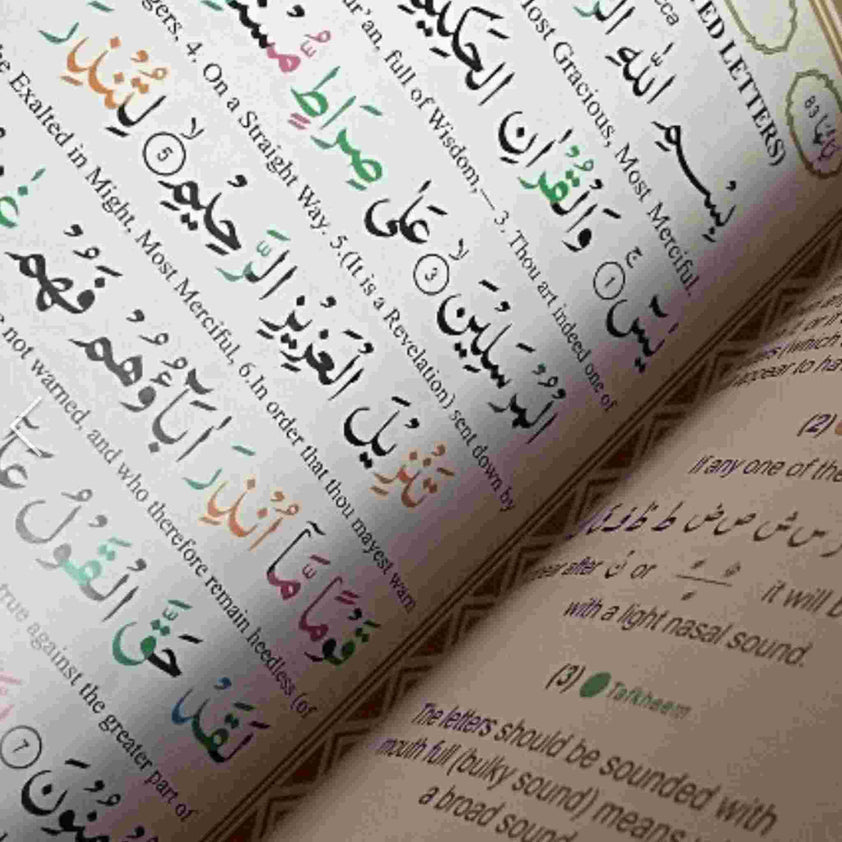 ED LETTERS)
بِسْمِ اللّٰهِ الر
ost Gracious, Most Merciful.
يٰسٓ ۚ ① وَالْقُرْاٰنِ الْحَكِيْمِ
ur'an, full of Wisdom,— 3. Thou art indeed one of
الْمُرْسَلِيْنَ ۙ ③ عَلٰى صِرَاطٍ مُّسْتَ
gers, 4. On a Straight Way. 5.(It is a Revelation) sent down by
تَنْزِيْلَ الْعَزِيْزِ الرَّحِيْمِ ۙ ⑤ لِتُنْذِرَ
e Exalted in Might, Most Merciful, 6.In order that thou mayest warn
قَوْمًا مَّآ اُنْذِرَ اٰبَآؤُهُمْ فَهُمْ غٰ
not warned, and who therefore remain heedless (of
لَقَدْ حَقَّ الْقَوْلُ عَلٰٓ
true against the greater part of
مِنُوْنَ ⑦
(2)
If any one of the
ear after نْ or
it will b
with a light nasal sound.
(3) Tafkheem
The letters should be sounded with
mouth full (bulky sound) means
a broad sound